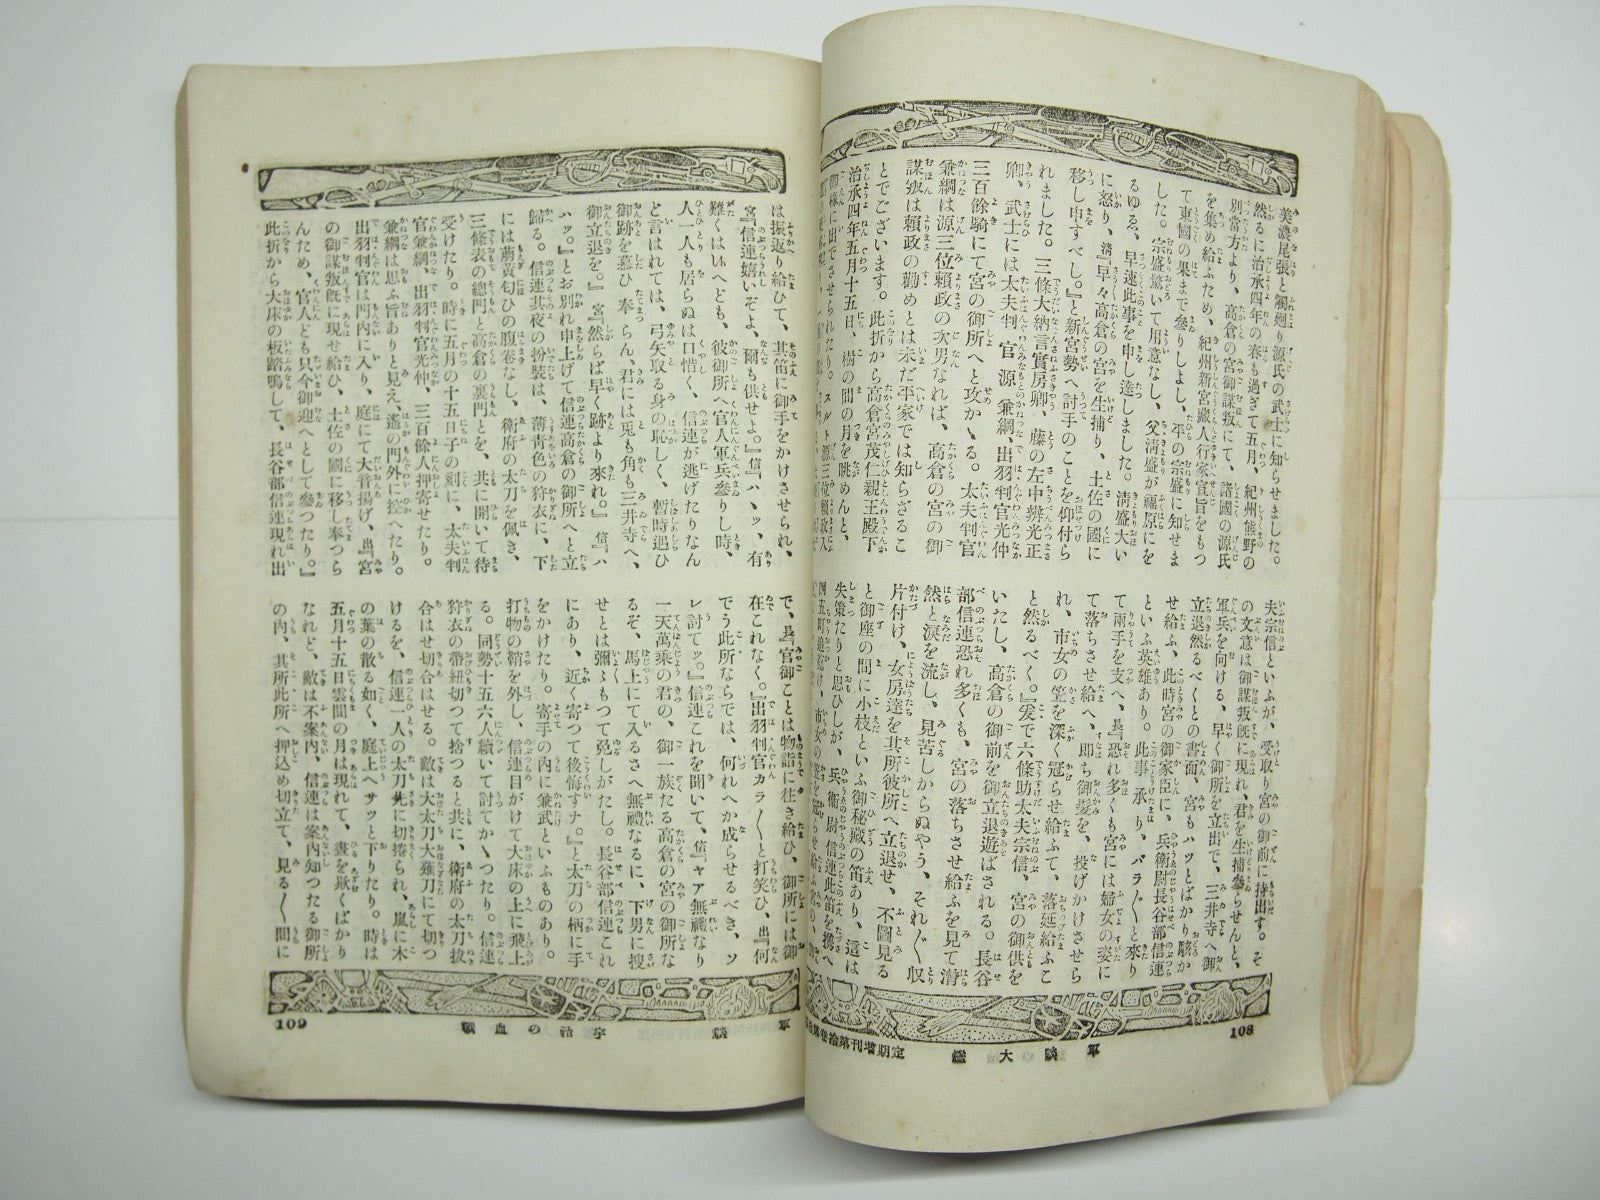 美濃尾張と觸廻り源氏の武士に知らせました。
然るに治承四年の春も過ぎて五月、紀州熊野の
別當方より、高倉の宮御謀叛にて、諸國の源氏
を集め給ふため、紀州新宮藏人行家宣旨をもつ
て東國の果まで參りしよし、平の宗盛に知せま
した。宗盛驚いて用意なし、父淸盛が福原にを
るゆゑ、早速此事を申し達しました。淸盛大い
に怒り、淸『早々高倉の宮を生捕り、土佐の國に
移し申すべし。』と新宮勢へ討手のことを仰付ら
れました。三條大納言實房卿、藤の左中辨光正
卿、武士には太夫判官源兼綱、出羽判官光仲
三百餘騎にて宮の御所へと攻かゝる。太夫判官
兼綱は源三位頼政の次男なれば、高倉の宮の御
謀叛は頼政の勸めとは未だ平家では知らざるこ
とでございます。此折から高倉宮茂仁親王殿下
治承四年五月十五日、樹の間の月を眺めんと、
御椽に出でさせられたり。スルト源三位頼政入
夫宗信といふが、受取り宮の御前に持出す。そ
の文意は御謀叛既に現れ、君を生捕參らせんと、
軍兵を向ける、早く御所を立出で、三井寺へ御
立退然るべくとの書面、宮もハッとばかり駭か
せ給ふ、此時宮の御家臣に、兵衛尉長谷部信連
といふ英雄あり。此事承り、バラ〱と來り
て兩手を支へ、長『恐れ多くも宮には婦女の姿に
て落ちさせ給へ、即ち御髮を、投げかけさせら
れ、市女の笠を深く冠らせ給ふて、落延給ふこ
と然るべく。』爰で六條助太夫宗信、宮の御供を
いたし、高倉の御前を御立退遊ばされる。長谷
部信連恐れ多くも、宮の落ちさせ給ふを見て潸
然と淚を流し、見苦しからぬやう、それ〲收
片付け、女房達を其所彼所へ立退せ、不圖見る
と御座の間に小枝といふ御秘藏の笛あり、這は
失策たりと思ひしが、兵衞尉信連此笛を携へ
四五町追駈け、
108
軍談大鑑
定期增刊第拾
は振返り給ひて、其笛に御手をかけさせられ、
宮『信連嬉いぞよ、爾も供せよ。』信『ハ、ッ、有
難くはいへども、彼御所へ官人軍兵參りし時、
人一人も居らぬは口惜く、信連が逃げたりなん
と言はれては、弓矢取る身の恥しく、暫時遇ひ
御跡を慕ひ奉らん、君には兎も角も三井寺へ、
御立退を。』宮『然らば早く跡より來れ。』信『ハ
ハッ。』とお別れ申上げて信連高倉の御所へと立
歸る。信連其夜の扮裝は、薄靑色の狩衣に、下
には萠黃匂ひの腹卷なし、衛府の太刀を佩き、
三條表の總門と高倉の裏門とを、共に開いて待
受けたり。時に五月の十五日子の刻に、太夫判
官兼綱、出羽判官光仲、三百餘人押寄せたり。
兼綱は思ふ旨ありと見え、遙の門外に控へたり。
出羽判官は門内に入り、庭にて大音揚げ、出『宮
の御謀叛既に現せ給ひ、土佐の國に移し奉つら
んため、官人ども只今御迎へとして參つたり。』
此折から大床の板踏鳴して、長谷部信連現れ出
で、長『官御ことは物詣に往き給ひ、御所には御
在これなく。』出羽判官カラ〱と打笑ひ、出『何
でう此所ならでは、何れへか成らせるべき、ソ
レ討てッ。』信連これを聞いて、信『ヤア無禮なり
一天萬乘の君の、御一族たる高倉の宮の御所な
るぞ、馬上にて入るさへ無禮なるに、下男に搜
せとは彌々もつて免しがたし。長谷部信連これ
にあり、近く寄つて後悔すナ。』と太刀の柄に手
をかけたり。寄手の内に兼武といふものあり。
打物の鞘を外し、信連目がけて大床の上に飛上
る。同勢十五六人續いて討てかゝつたり。信連
狩衣の帶紐切つて捨つると共に、衛府の太刀拔
合はせ切合はせる。敵は大太刀大薙刀にて切つ
けるを、信連一人の太刀先に切捲られ、嵐に木
の葉の散る如く、庭上へサッと下りたり。時は
五月十五日雲間の月は現れて、晝を欺くばかり
なれど、敵は不案内、信連は案内知つたる御所
の内、其所此所へ押込め切立て、見る〱間に
109
軍談
宇治の血戰